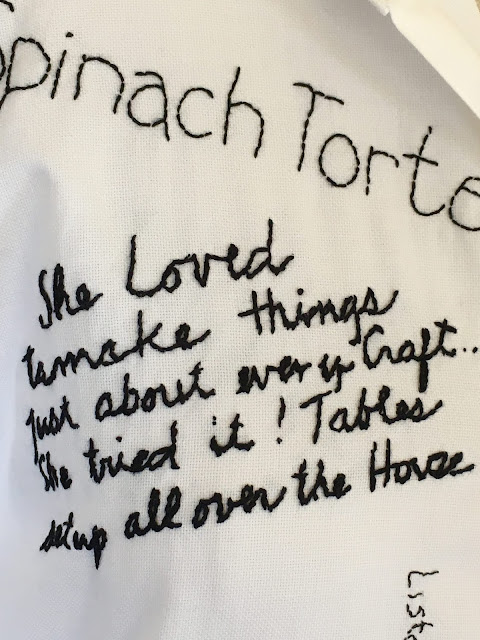 Spinach Torte
She Loved
to make things
just about every Craft..
She tried it! Tables
set up all over the House